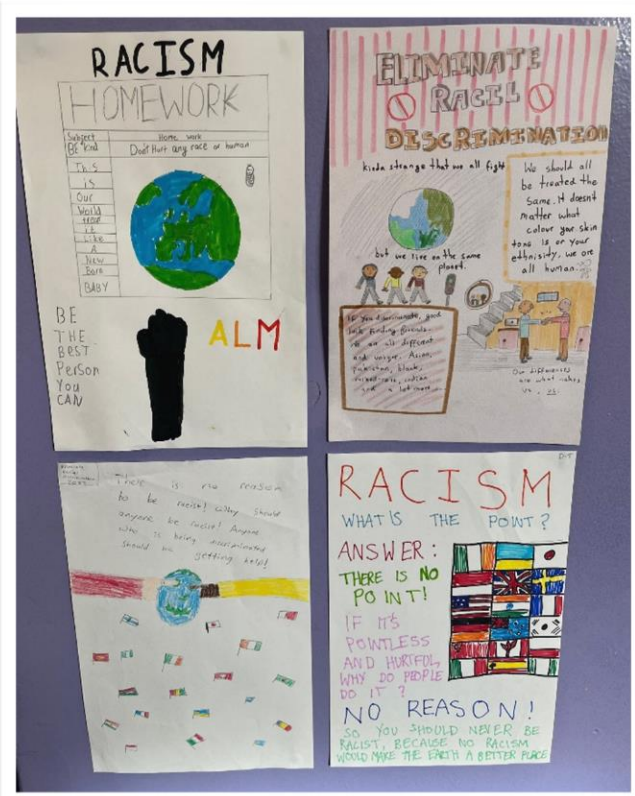 RACISM
HOMEWORK
Subject
Home work
BE Kind
Don't Hurt any race or human
This
is
Our
World
treat
it
Like
A
New
Born
BABY
BE
THE
BEST
PerSon
You
CAN
ALM
ELIMINATE
RACIL
DISCRIMINATION
kinda strange that we all fight
but we live on the same
planet.
We should all
be treated the
same. It doesn't
matter what
colour your skin
tone is or your
ethnisity, we are
all human.
If you discriminate, good
luck finding friends.
we are all different
and unique. Asian,
pakistan, black,
indian
and a lot more
Our differences
are what makes
us, us.
There is no reason
to be racist! Why should
anyone be racist! Anyone
who is being discriminated
should be getting help!
RACISM
WHAT IS THE POINT?
ANSWER:
THERE IS NO
POINT!
IF IT'S
POINTLESS
AND HURTFUL,
WHY DO PEOPLE
DO IT?
NO REASON!
SO YOU SHOULD NEVER BE
RACIST, BECAUSE NO RACISM
WOULD MAKE THE EARTH A BETTER PLACE